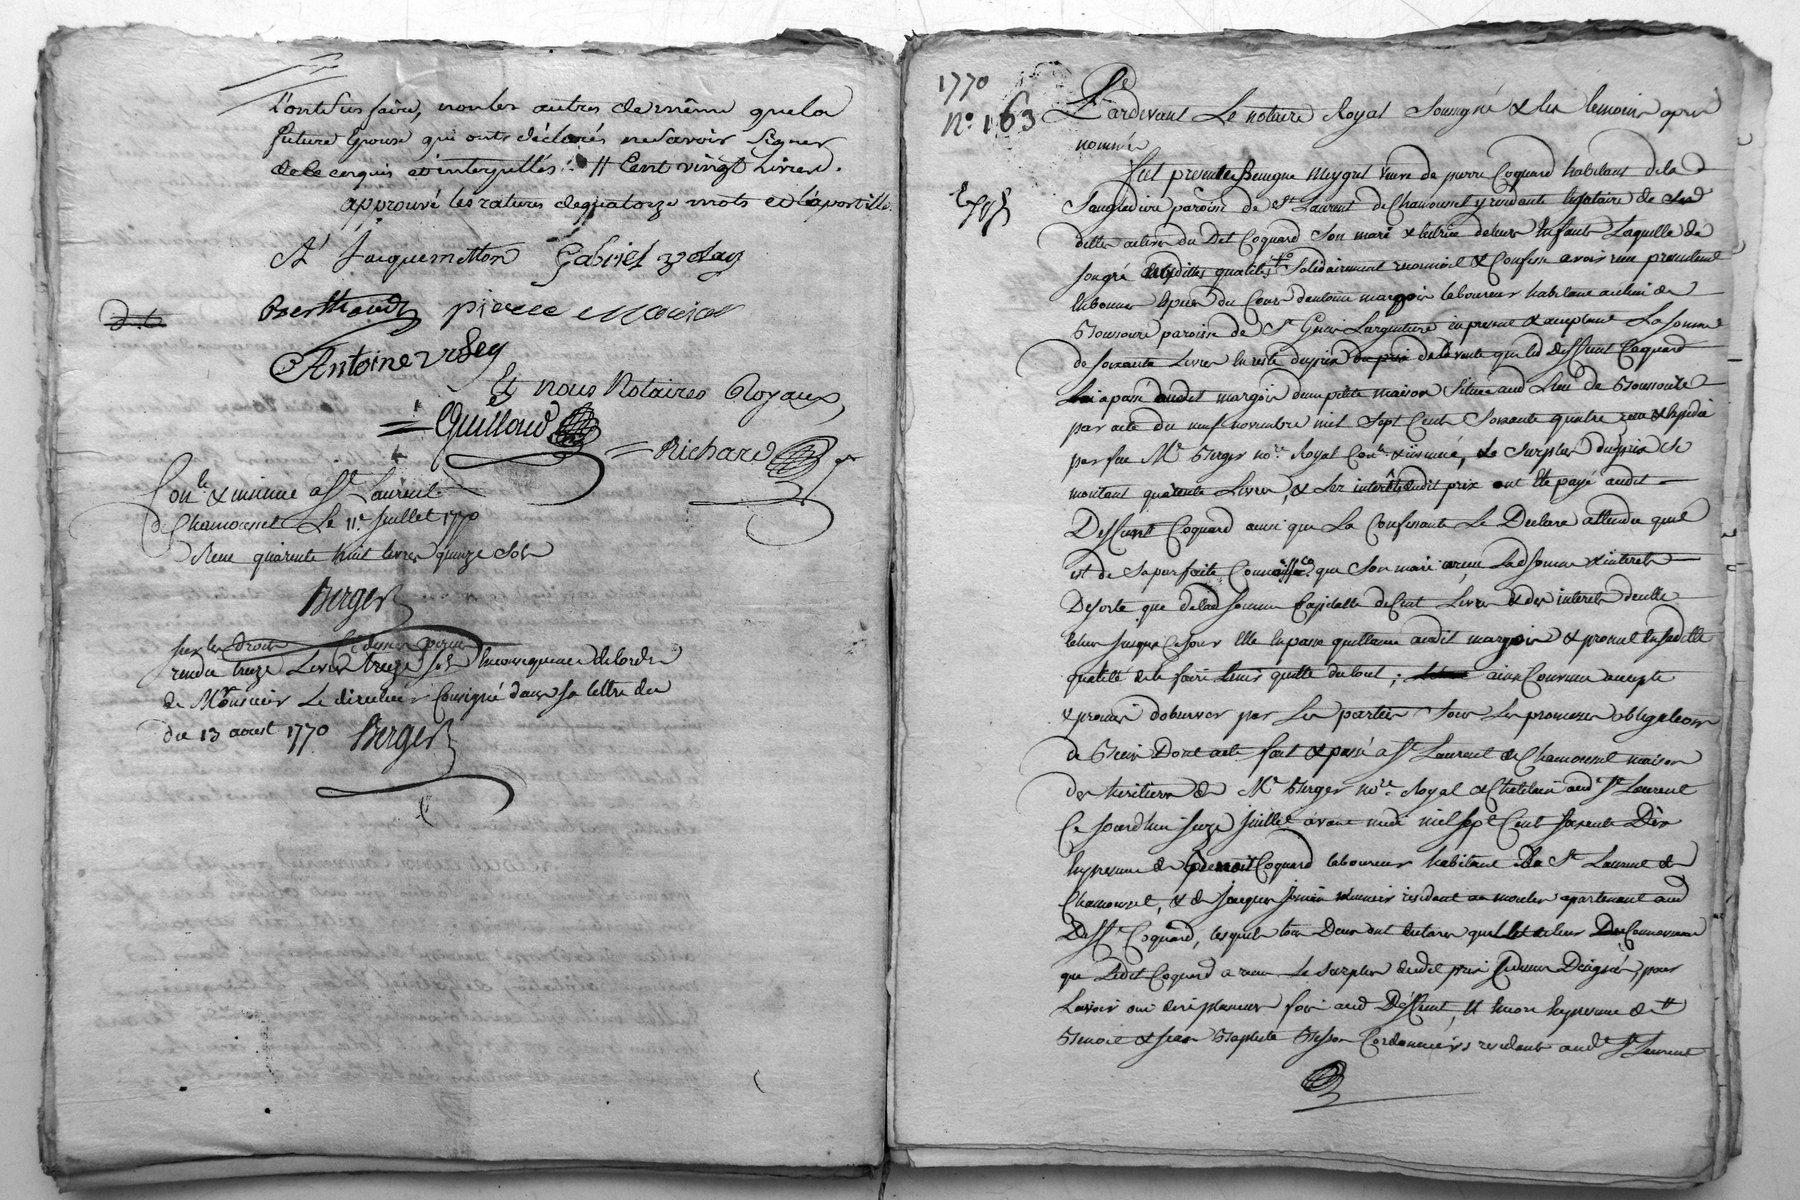 L'ont sus faire, non les autres de même que la
future Epouse qui ont déclarés ne savoir signer
de ce enquis et interpellés. # Cent vingt Livres.
approuvé les ratures de quatorze mots et l'apostille.
Jacquemetton Gabriel
Berthaud pierre
Antoine
Et nous Notaires Royaux,
Guilloud
Richard
Con.le & insinué a S.t Laurent
de Chamousset Le 11.e Juillet 1770
Reçu quarente huit livres quinze Sols
Berger
sur les droits
rendu treize Livres treize sols en consequence de l'ordre
de Monsieur Le directeur Consigné dans sa lettre du
du 13 aoust 1770 Berger
1770
N.o 163
Pardevant Le notaire Royal Soussigné & les temoins apres
nommés
fut presente Benigne meygret veuve de pierre Coquard habitant de la
paroisse de S.t Laurent de Chamousset y rendante
dittes actions du Dit Coquard Son mari & tutrice de leurs Enfants Laquelle de
son gré Solidairement reconnoit & Confesse avoir reçu presentement
en bonnes Especes du Cours d'antoine margoir laboureur habitant au lieu de
paroisse de S.t Genis Largentiere en present & acceptant La Somme
de soixante Livres En reste du prix du prix de la vente que led Deffunt Coquard
Lui a passé audit margoir d'une petite maison Située aud Lieu de
par acte du neuf novembre mil Sept Cent Soixante quatre reçu & Expedié
par feu M.e Berger no.re Royal Con.lé & insinué, Le Surplus du prix Se
montant quarente Livres, & Les interêts dudit prix ont été payé audit
Deffunt Coquard ainsi que La Confessante Le Declare attendu quil
est de Sa parfaite Connoissce. que Son mari a reçu Lad Somme & interets
Desorte que de lad Somme Capitalle de Cent Livres & des interets d'icelle
Elle En passe quittance audit margoir & promet En sad
qualité de le faire tenir quitte du tout; ainsi Convenu accepté
& promis d'observer par Les parties Sous Les promesses obligations
de Biens Dont acte fait & passé a S.t Laurent de Chamousset maison
des heritiers de M.e Berger no.re Royal & Chatelain aud S.t Laurent
Ce jourd'hui seize Juillet avant midi mil Sept Cent Soixante Dix
En presence de Benoit Coquard laboureur habitant de S.t Laurent de
Chamousset, & de Jacques resident au moulin apartenant aud
Deff.t Coquard, lesquels tous Deux ont declarer
que Ledit Coquard a reçu Le Surplus dudit prix Cidessus Designé, pour
Lavoir oui dire plusieurs fois aud Deffunt, # Encore En presence de #
Benoit & Jean Baptiste Cordonniers residents aud S.t Laurent